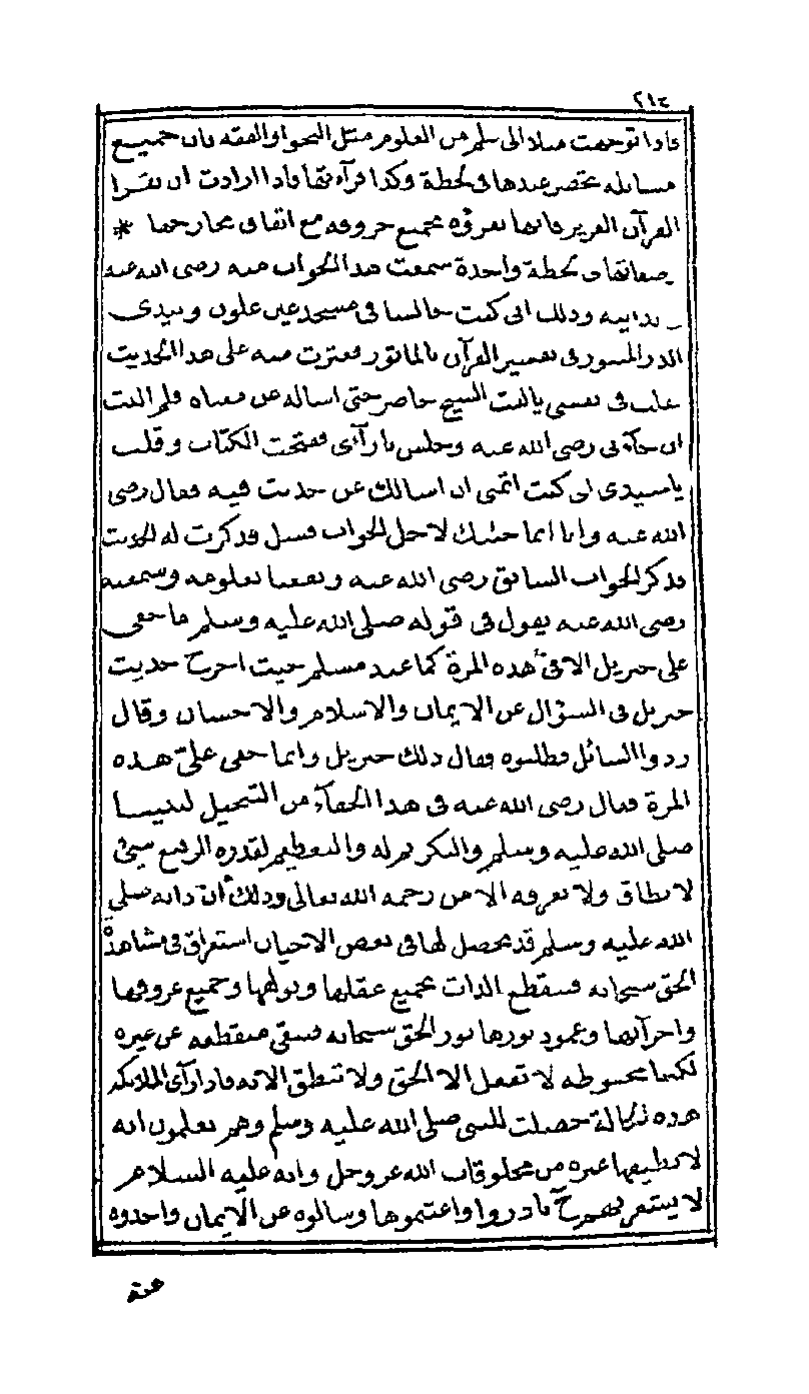 ٢١٤
فاذا توجهت مثلا الى علم من العلوم مثل النحو او الفقه فان جميع
مسائله تحضر عندها فى لحظة وكذا قرآءتها فاذا ارادت ان تقرا
القرآن العزيز فانها تقرؤه بجميع حروفه مع اتقان مخارجها *
وصفاتها فى لحظة واحدة سمعت هذا الجواب منه رضى الله عنه
بدابيه وذلك انى كنت جالسا فى مسجد عين علون وبيدى
الدر المنثور فى تفسير القرآن بالماثور فعثرت منه على هذا الحديث
فقلت فى نفسى ياليت الشيخ حاضر حتى اساله عن معناه فلم البث
ان جآءنى رضى الله عنه وجلس بازآءى ففتحت الكتاب وقلت
ياسيدى انى كنت اتمنى ان اسالك عن حديث فيه فقال رضى
الله عنه وانا انما جئتك لاجل الجواب فسل فذكرت له الحديث
فذكر الجواب السابق رضى الله عنه ونفعنا بعلومه وسمعته
رضى الله عنه يقول فى قوله صلى الله عليه وسلم ما خفى
على جبريل الا فى هذه المرة كما عند مسلم حيث اخرج حديث
جبريل فى السؤال عن الايمان والاسلام والاحسان وقال
ردوا السائل فطلبوه فقال ذلك جبريل وانما خفى علىّ هذه
المرة فقال رضى الله عنه فى هذا الخفآء من التبجيل لنبينا
صلى الله عليه وسلم والتكريم له والتعظيم لقدره الرفيع شئ
لا يطاق ولا يعرفه الا من رحمه الله تعالى وذلك أن ذاته صلى
الله عليه وسلم قد يحصل لها فى بعض الاحيان استغراق فى مشاهدة
الحق سبحانه فتنقطع الذات بجميع عقلها وجميع عروقها
واجزآيها وعمود نورها بنور الحق سبحانه فتبقى منقطعه عن غيره
لكنها محفوظه لا تفعل الا الحق ولا تنطق الا به فاذا رآى الملائكة
هذه الحالة حصلت للنبى صلى الله عليه وسلم وهم يعلمون انه
لا يطيقها غيره من مخلوقات الله عز وجل وانه عليه السلام
لا يستشعر بهم ح بادروا واغتنموها وسالوه عن الايمان واخذوه
عنه